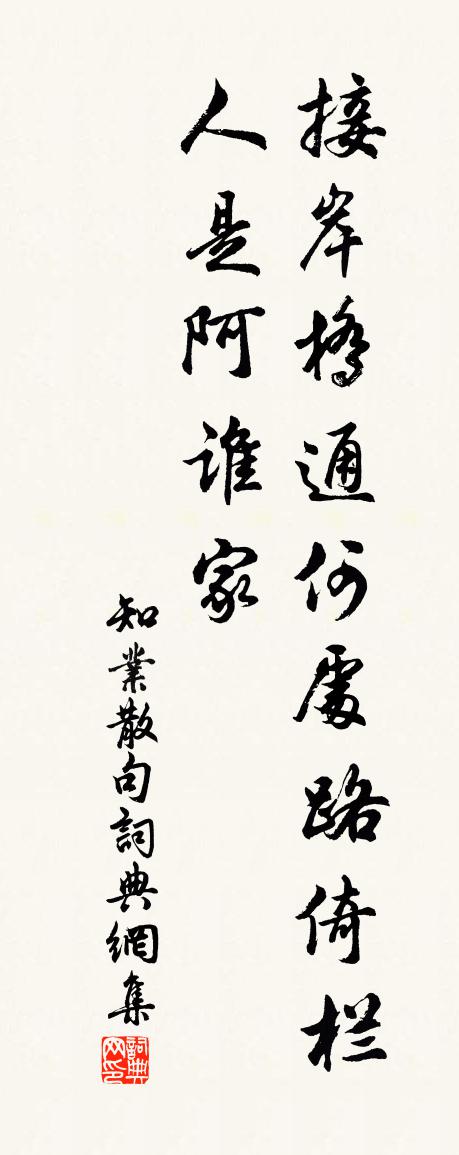 接岸橋通何處路倚栏
人是阿誰家
知業散句詞典網集
詞典网印